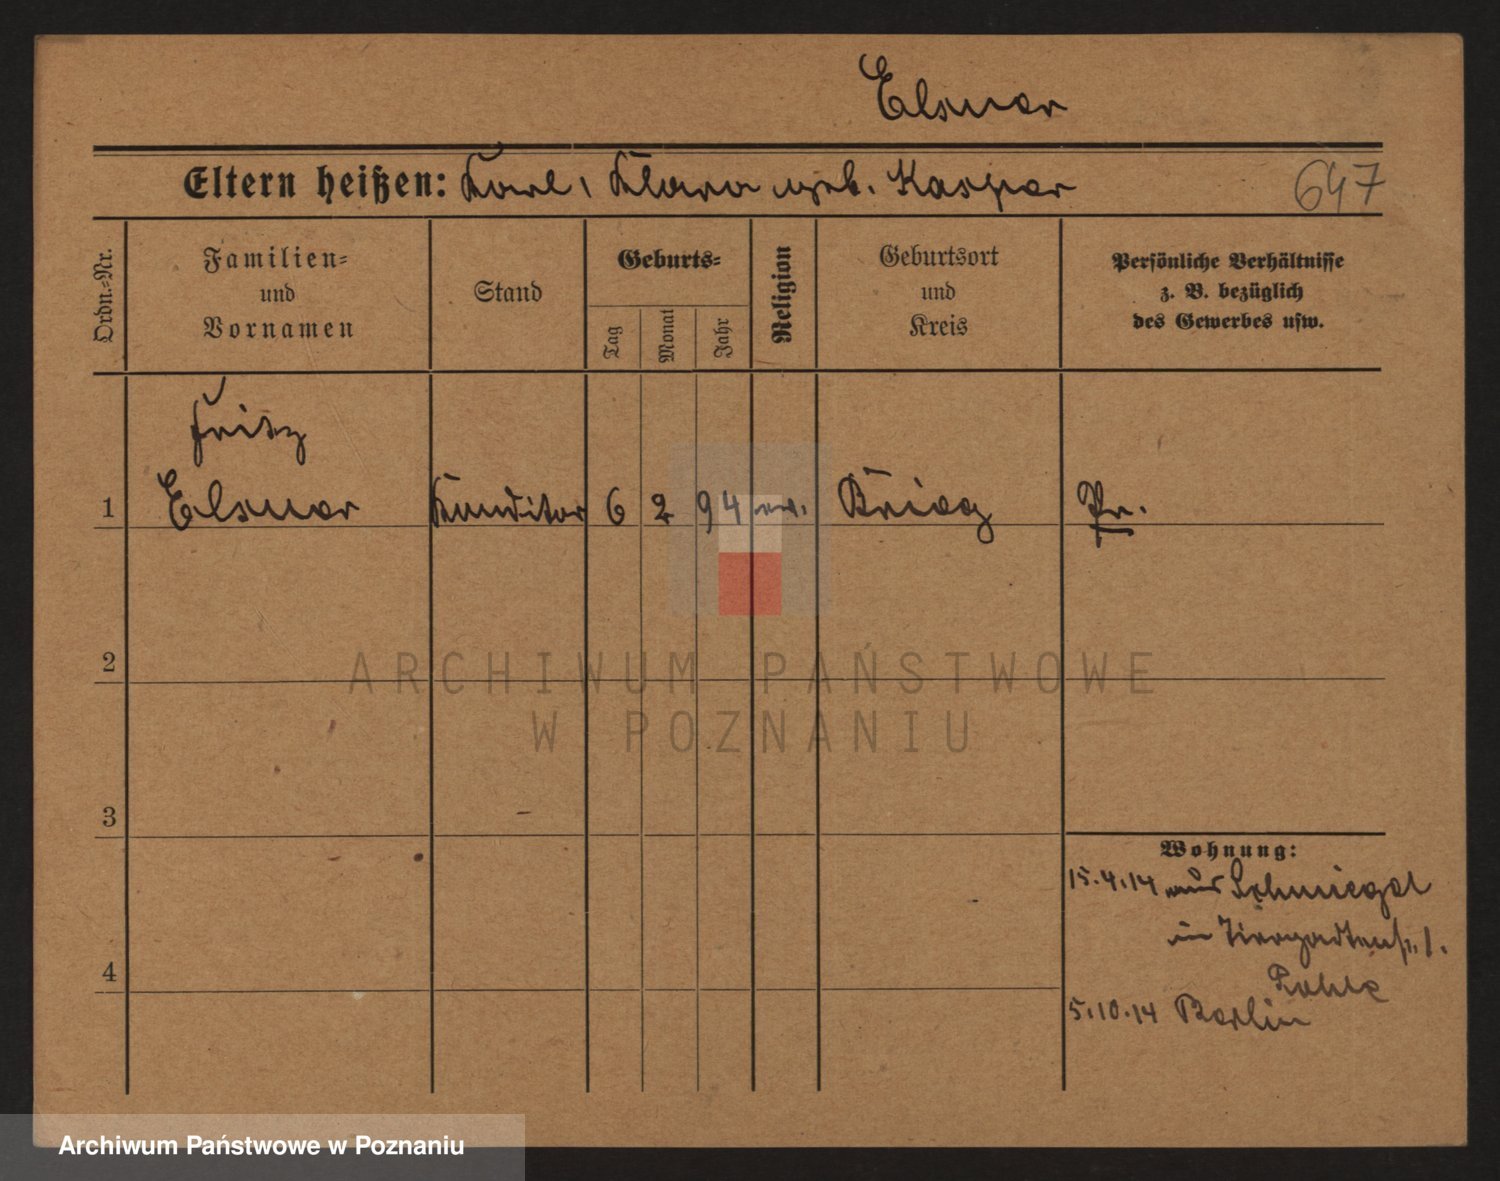 Elsner
Eltern heißen: Karl, Klara geb. Kasper
647
Ordn.-Nr.
Familien-
und
Vornamen
Stand
Geburts-
Tag
Monat
Jahr
Religion
Geburtsort
und
Kreis
Persönliche Verhältnisse
z. B. bezüglich
des Gewerbes usw.
Fritz
1 Elsner Konditor 6 2 94 ev. Brieg Pr.
2
3
4
Wohnung:
15.4.14 aus Schmiegel
in Tiergartenstr. 1.
5.10.14 Berlin
ARCHIWUM PAŃSTWOWE
W POZNANIU
Archiwum Państwowe w Poznaniu